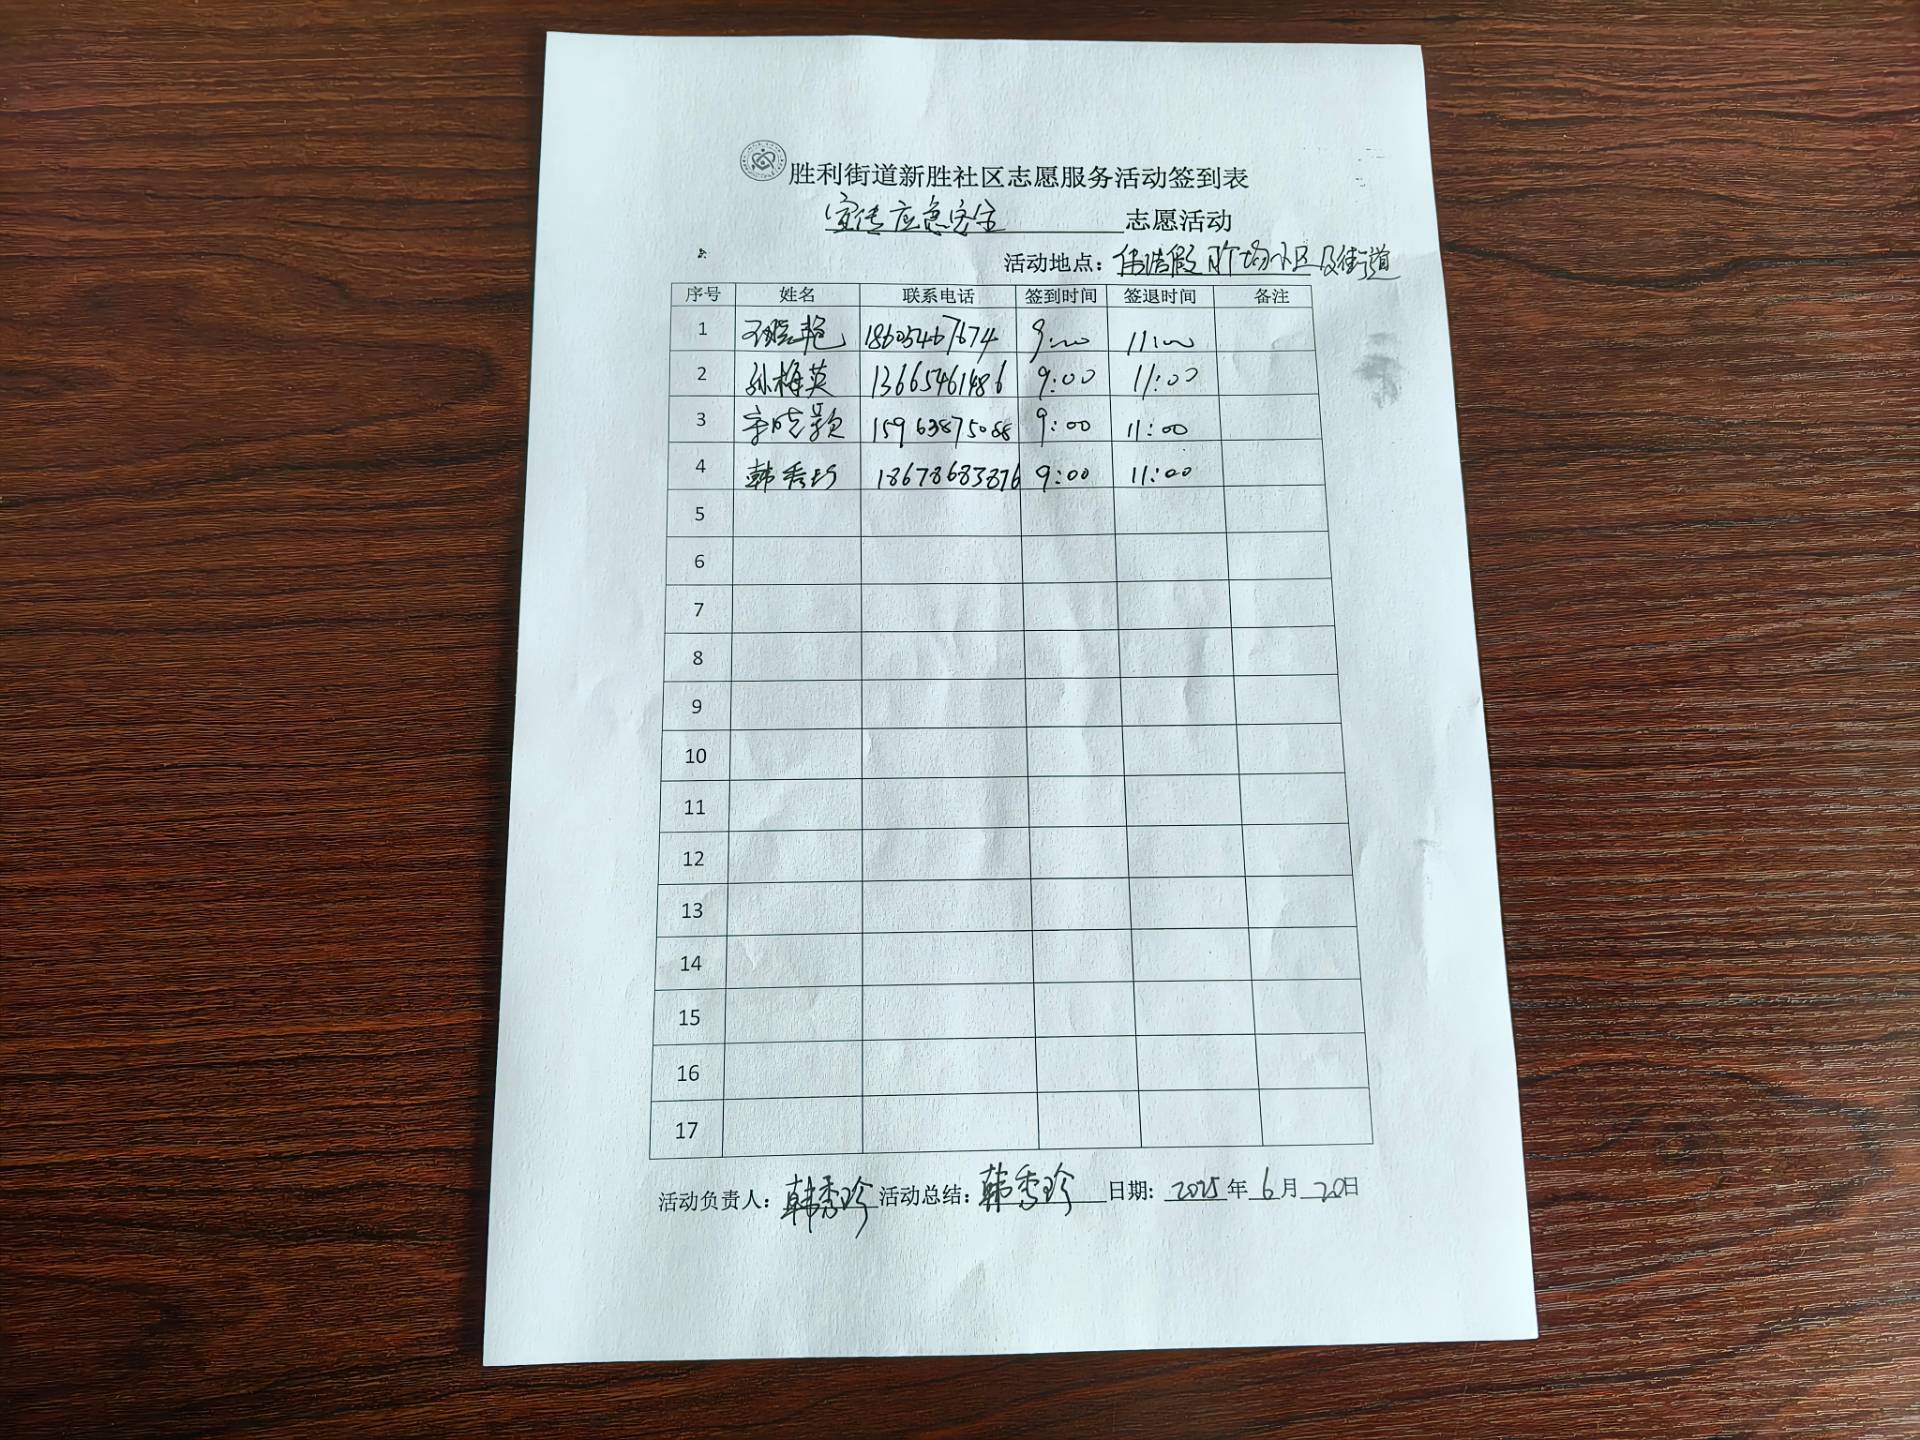 胜利街道新胜社区志愿服务活动签到表
宣传应急安全 志愿活动
活动地点: 小区及街道
序号 姓名 联系电话 签到时间 签退时间 备注
1 18605467674 9:00 11:00
2 孙梅英 13665461486 9:00 11:00
3 宋晓颖 15963875088 9:00 11:00
4 韩秀珍 18678683876 9:00 11:00
5
6
7
8
9
10
11
12
13
14
15
16
17
活动负责人: 韩秀珍 活动总结: 韩秀珍 日期: 2025 年 6 月 20 日